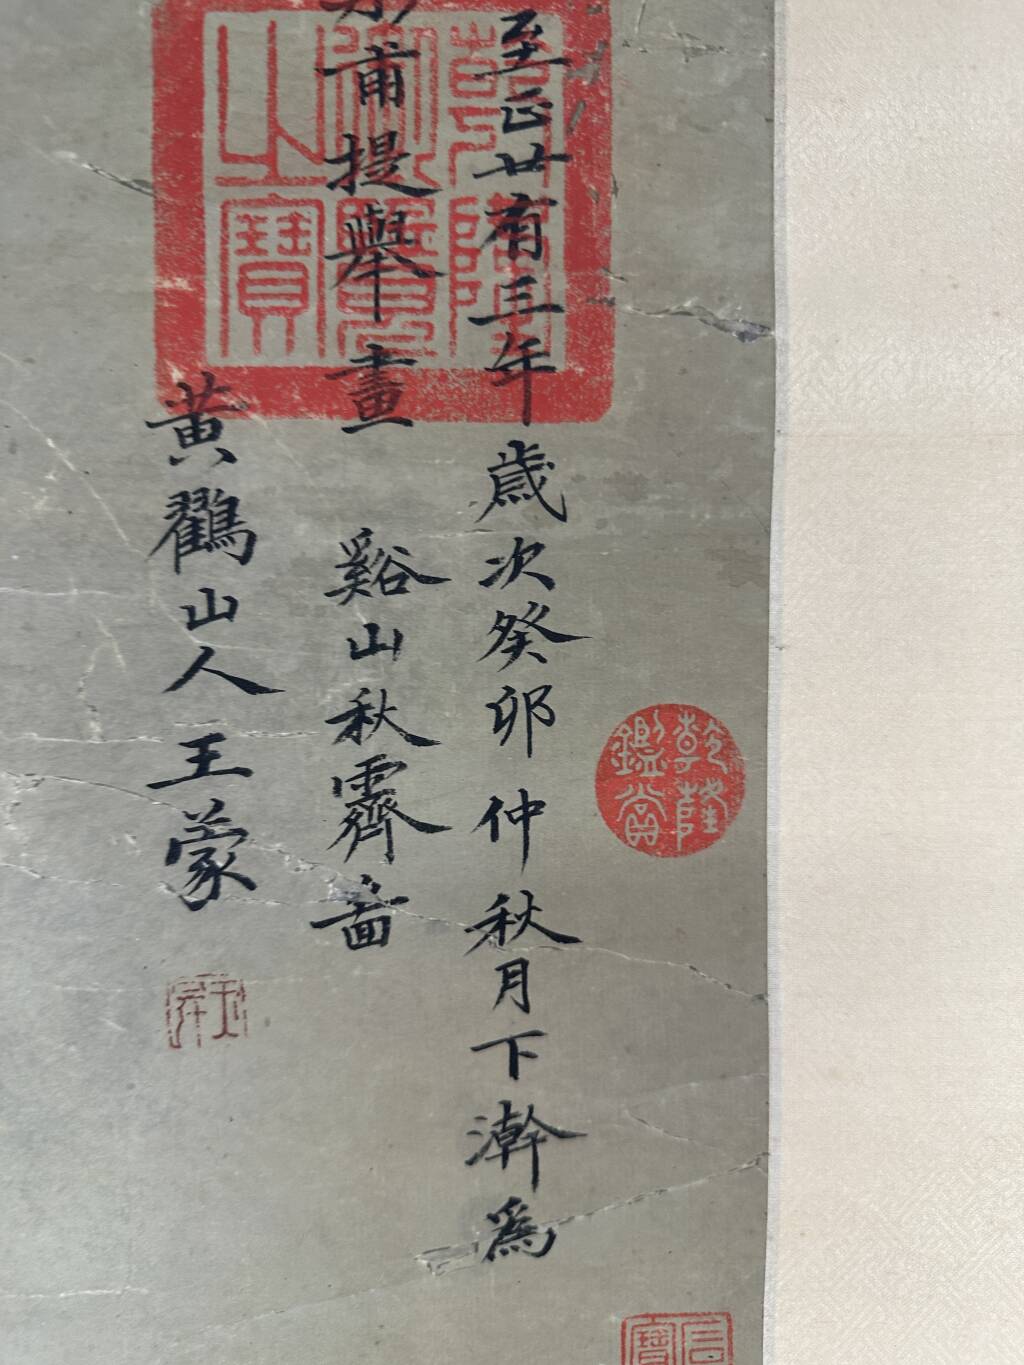 至正廿有三年歲次癸卯仲秋月下澣為
甫提舉畫 谿山秋霽啚
黃鶴山人王蒙
乾隆御覽之寶
乾隆鑑賞